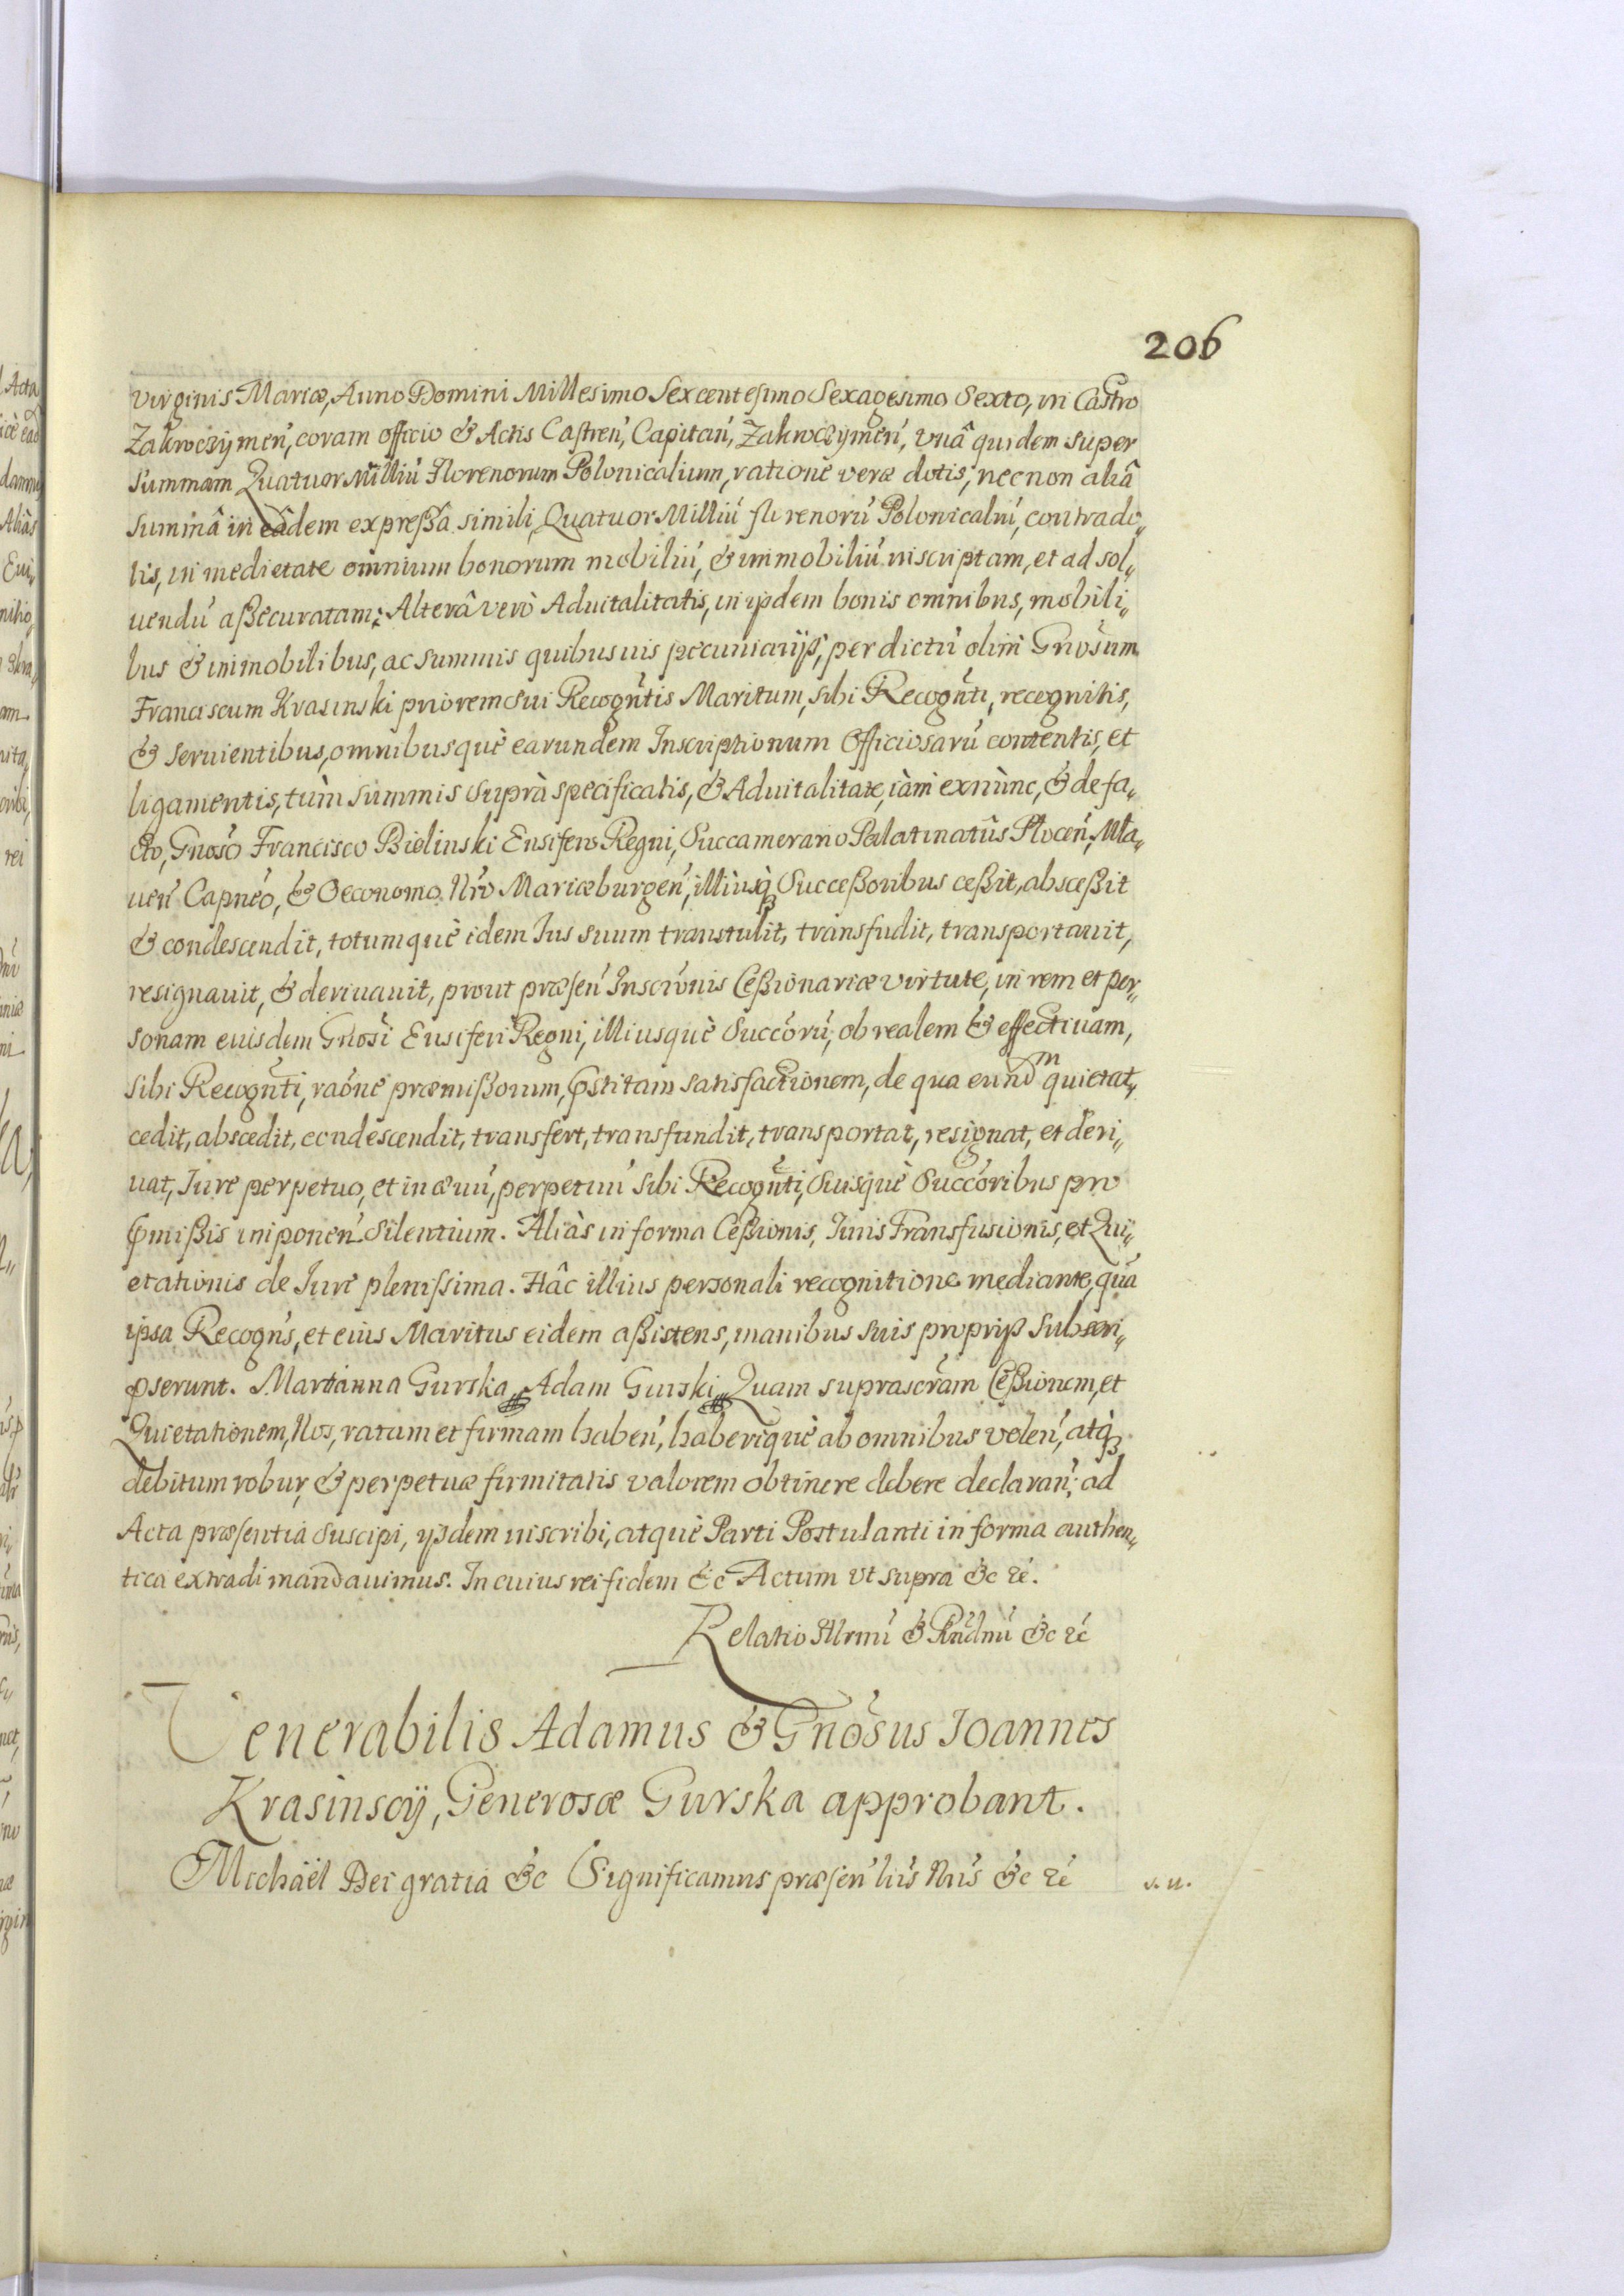 206
Virginis Mariæ, Anno Domini Millesimo Sexcentesimo Sexagesimo Sexto, in Castro
Zakroczÿmeń, coram officio & Actis Castreń, Capitań, Zakroczÿmeń, vnâ quidem super
summam Quatuor Milliú Florenorum Polonicalium, ratione veræ dotis, necnon aliâ
summâ in eâdem expreßâ simili, Quatuor Milliú florenorú Polonicaliú, contrado„
tis, in medietate omnium bonorum mobiliú, & immobiliú inscriptam, et ad sol„
uendú aßecuratam; Alterâ verò Aduitalitatis, in ijsdem bonis omnibus, mobili„
bus & immobilibus, ac summis quibusuis pecuniarijs, per dictú olim Gnosum
Franciscum Krasinski priorem sui Recogntis Maritum, sibi Recognti, recognitis,
& seruientibus, omnibusquè earundem Inscriptionum Officiosarú contentis, et
ligamentis, tùm summis suprà specificatis, & Aduitalitate, iàm exnùnc, & de fa„
cto, Gnoso Francisco Bielinski Ensifero Regni, Succamerario Palatinatûs Ploceń, Mla„
ueń Capneo, & Oeconomo Nro Mariæburgeń, illiusq₃ Succeßoribus ceßit, absceßit
& condescendit, totumquè idem Ius suum transtulit, transfudit, transportauit,
resignauit, & deriuauit, prout præseń Inscronis Ceßionariæ virtute, in rem et per„
sonam euisdem Gnosi Ensiferi Regni, illiusquè Succorú, ob realem & effectiuam,
sibi Recognti, raone præmißorum, pstitam satisfactionem, de qua eundm quietat„
cedit, abscedit, condescendit, transfert, transfundit, transportat, resignat, et deri„
uat, Iure perpetuo, et in æuú, perpetuú sibi Recognti, Suisquè Succoribus pro
pmißis imponeń Silentium. Aliàs in forma Ceßionis, Iuris Transfusionis, et Qui„
etationis de Iure plenissima. Hâc illius personali recognitione mediante, qua
ipsa Recogns, et eius Maritus eidem aßistens, manibus suis proprijs subscri„
pserunt. Marianna Gurska, Adam Gurski, Quam suprascram Ceßionem, et
Quietationem, Nos, ratam et firmam habeń, haberiquè ab omnibus voleń, atq₃
debitum robur, & perpetuæ firmitatis valorem obtinere debere declarań, ad
Acta præsentia suscipi, ijsdem inscribi, atquè Parti Postulanti in forma authen„
tica extradi mandauimus. In cuius rei fidem &c Actum vt supra &c &c.
Relatio Illrmi & Rndmi &c &c
Venerabilis Adamus & Gnosus Joannes
Krasinscÿ, Generosæ Gurska approbant.
Michaël Dei gratia &c Significamus præseń lris Nris &c &c